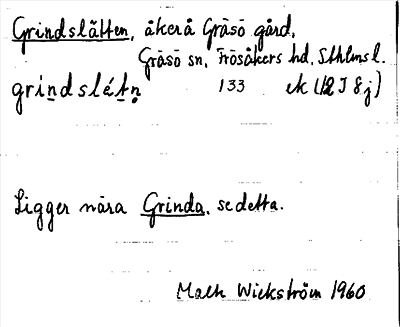 Grindslätten, åker å Gräsö gård,
Gräsö sn, Frösåkers hd, Sthlms l.
grindslétn 133 ek (12 I 8 j)
Ligger nära Grinda, se detta.
Wickström 1960